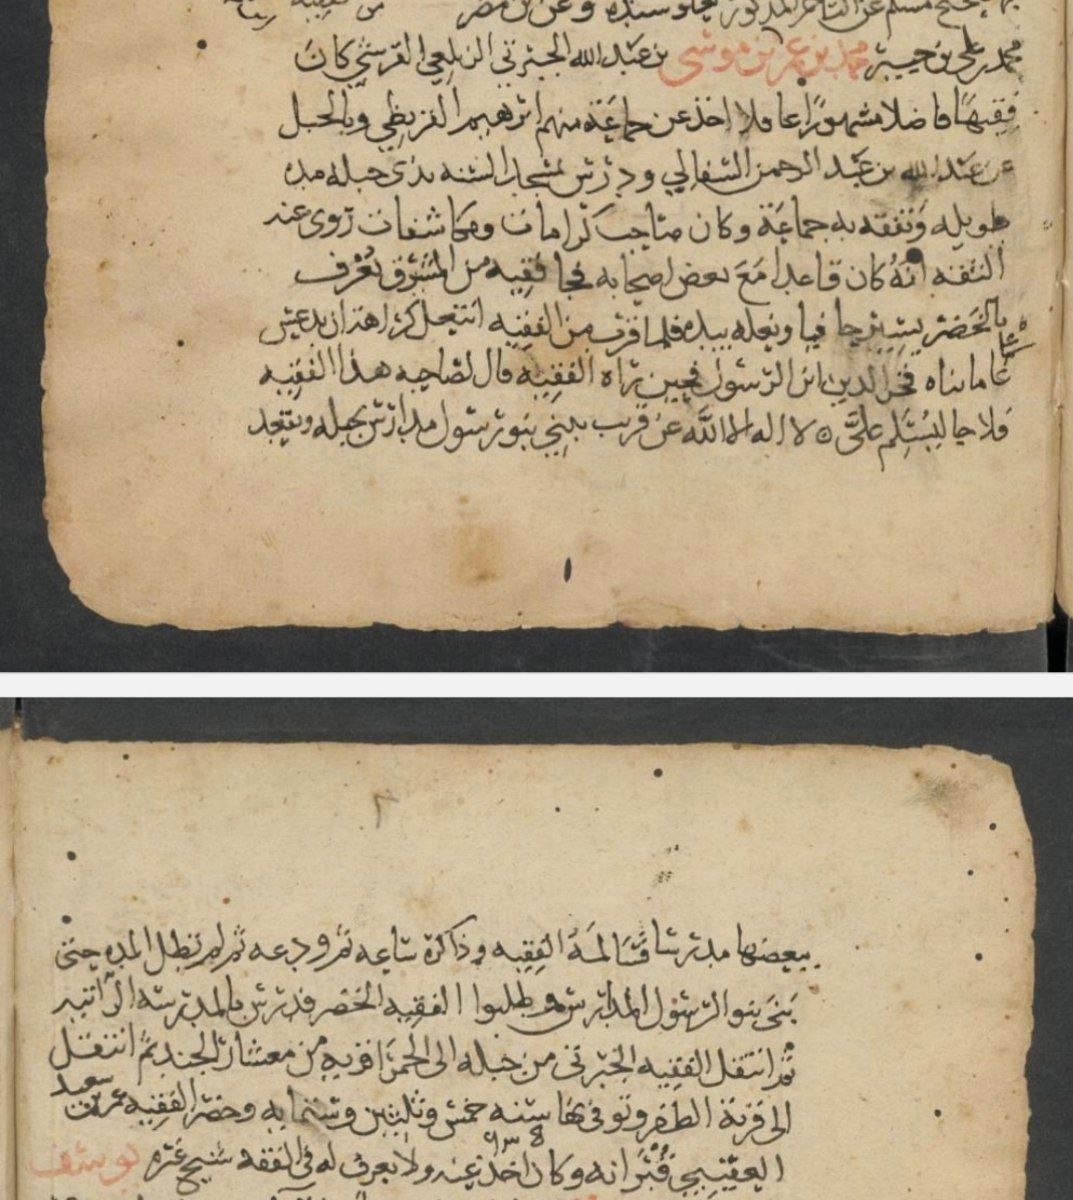 مسلم عن
محمد بن علي بن جبير محمد بن عمر بن موسى بن عبد الله الجبرتي الزيلعي القرشي كان
فقيها فاضلا مشهورا عاقلا اخذ عن جماعة منهم ابرهيم القريظي وبالجبل
عن عبد الله بن عبد الرحمن السفالي ودرس بمسجد السنه بذي جبله مده
طويله وتفقه به جماعة وكان صاحب كرامات ومكاشفات روى عنه
الثقه انه كان قاعدا مع بعض اصحابه فجا فقيه من المشرق يعرف
بالخضر يسير حافيا ونعله بيده فلما قرب من الفقيه انتعل
فخر الدين ابن الرسول فحين راه الفقيه قال لصاحبه هذا الفقيه
فلا جا ليسلم علي ه لا اله الا الله عن قريب يبني بنو رسول مدارس بجبله ويقعد
ببعضها مدرسا فسالمه الفقيه وذاكره ساعه ثم ودعه ثم لم تطل المده حتى
بنى بنو الرسول المدارس وطلبوا الفقيه الخضر فدرس بالمدرسه
ثم انتقل الفقيه الجبرتي من جبله الى الحمرا قريه من معشار الجند ثم انتقل
الى قرية الظفر وتوفي بها سنه خمس وثلثين وستمايه وحضر الفقيه عمر بن سعيد
٦٣٥
العقيبي قبرانه وكان اخذ عنه ولا يعرف له في الفقه شيخ غيره يوسف